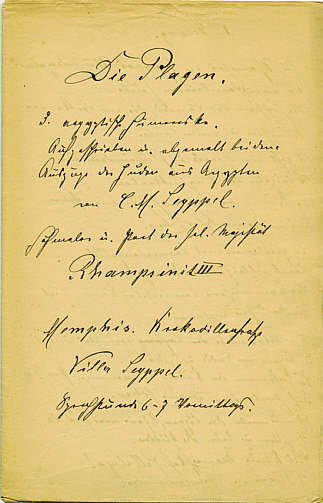 Die Plagen.
3. aegyptische Humoreske.
Aufgeschrieben u. abgemalt bei dem
Auszuge der Juden aus Aegypten
von C. M. Seyppel.
Hofmaler u. Poet der sel. Majestät
Rhampsinit III
Memphis. Krokodillenstraße
Villa Seyppel.
Sprechstunde 6-7 Vormittags.